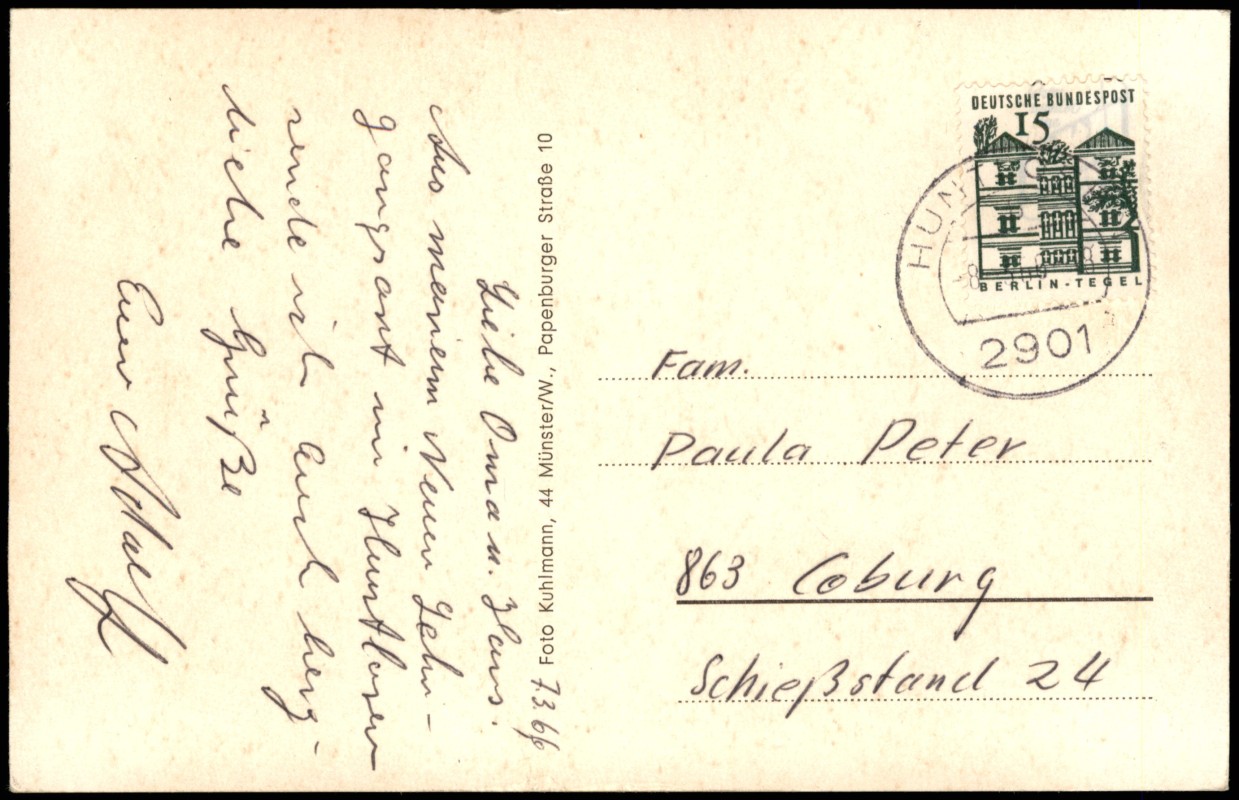 7.3.66
Liebe Oma u. Hans.
Aus meinem Neuen Lehr-
gangsort in Huntlosen
sende ich Euch herz-
liche Grüße
Euer
Foto Kuhlmann, 44 Münster/W., Papenburger Straße 10
DEUTSCHE BUNDESPOST
15
BERLIN-TEGEL
2901
Fam.
Paula Peter
863 Coburg
Schießstand 24